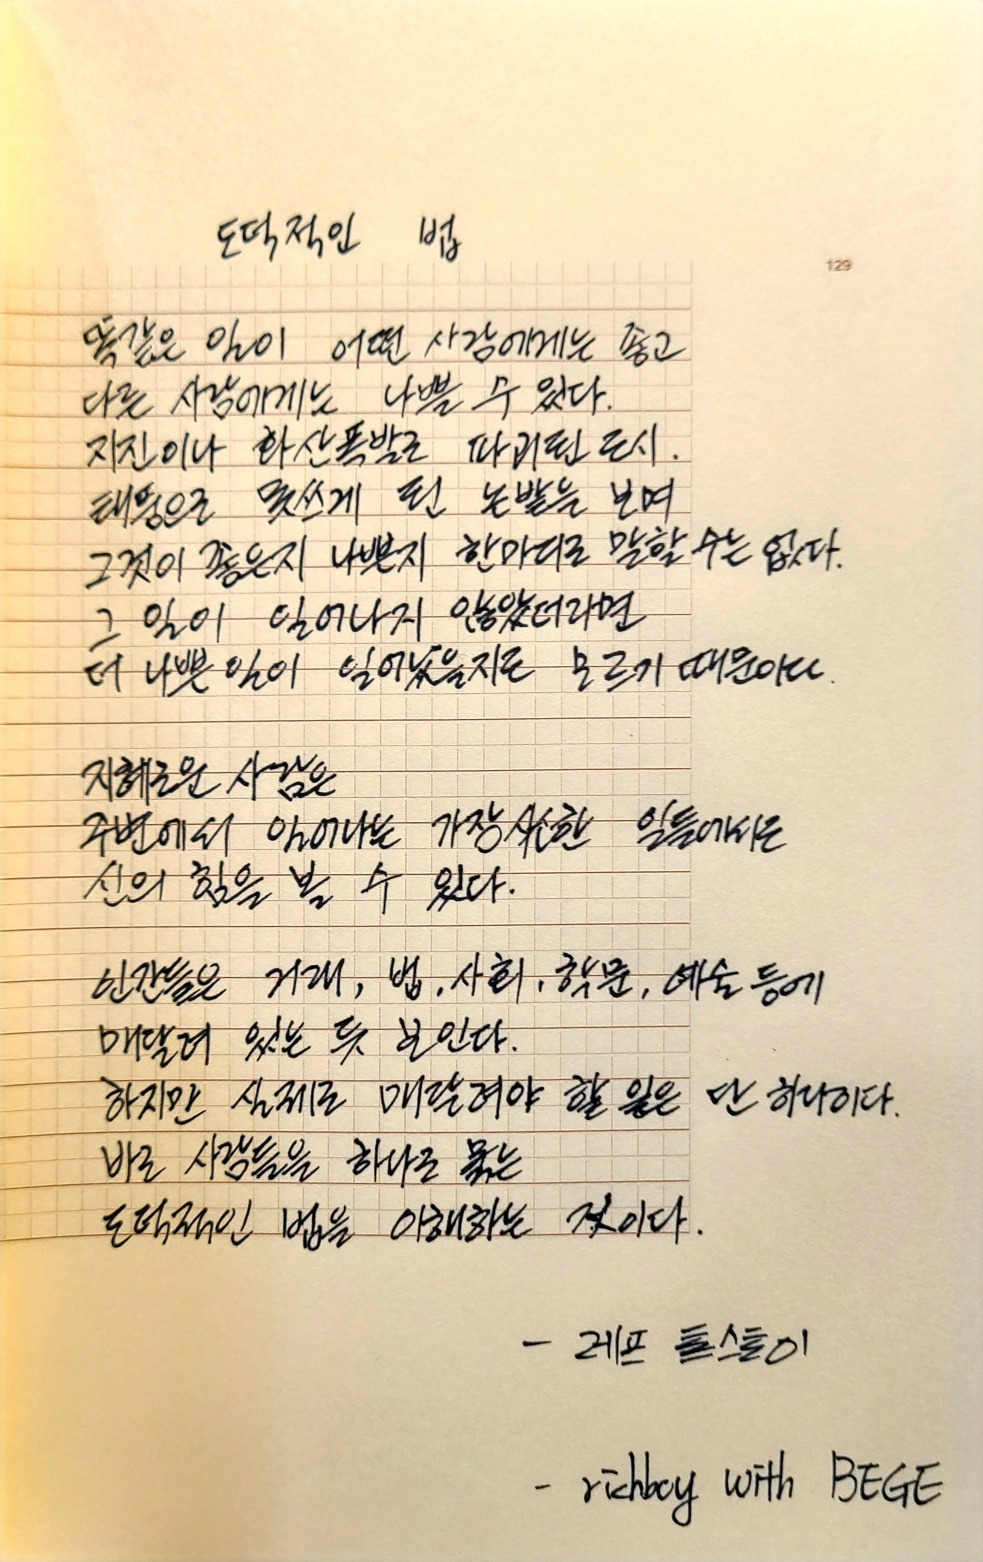 도덕적인 법
129
똑같은 일이 어떤 사람에게는 좋고
다른 사람에게는 나쁠 수 있다.
지진이나 화산폭발로 파괴된 도시.
태풍으로 못쓰게 된 논밭을 보며
그것이 좋은지 나쁜지 한마디로 말할 수는 없다.
그 일이 일어나지 않았더라면
더 나쁜 일이 일어났을지도 모르기 때문이다.
지혜로운 사람은
주변에서 일어나는 가장 사소한 일들에서도
신의 힘을 볼 수 있다.
인간들은 거래, 법, 사회, 학문, 예술 등에
매달려 있는 듯 보인다.
하지만 실제로 매달려야 할 일은 단 하나이다.
바로 사람들을 하나로 묶는
도덕적인 법을 이해하는 것이다.
- 레프 톨스토이
- richboy with BEGE